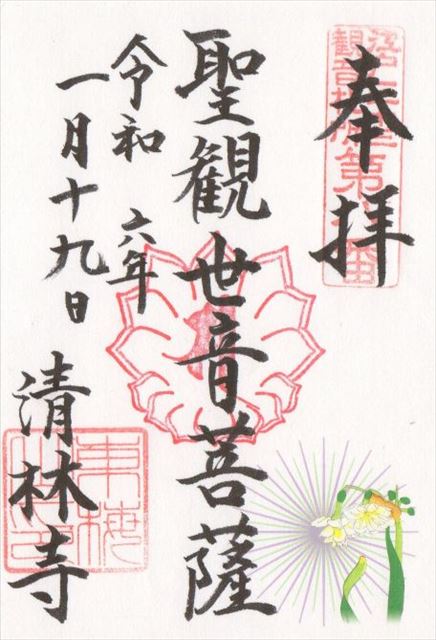 奉拝
聖観世音菩薩
令和六年
一月十九日
清林寺